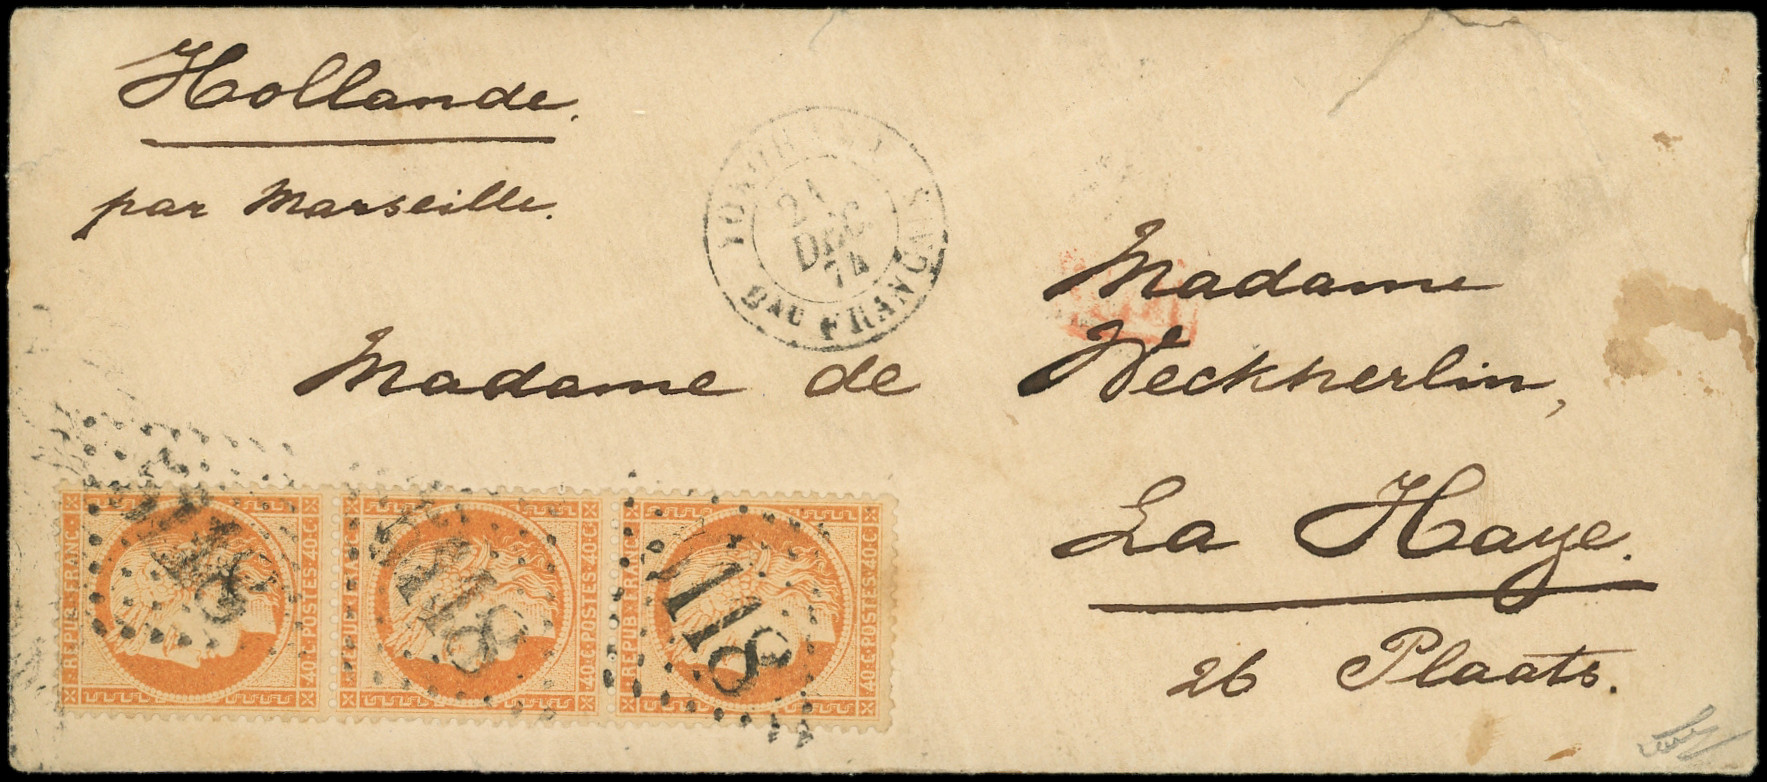 Hollande.
par Marseille.
YOKOHAMA
21
DEC.
74
BAU FRANÇAIS
Madame
Madame de Weckherlin,
La Haye.
26 Plaats.
REPUB·FRANC·
40·C·POSTES·40·C
REPUB·FRANC·
40·C·POSTES·40·C
REPUB·FRANC·
40·C·POSTES·40·C
5118
5118
5118